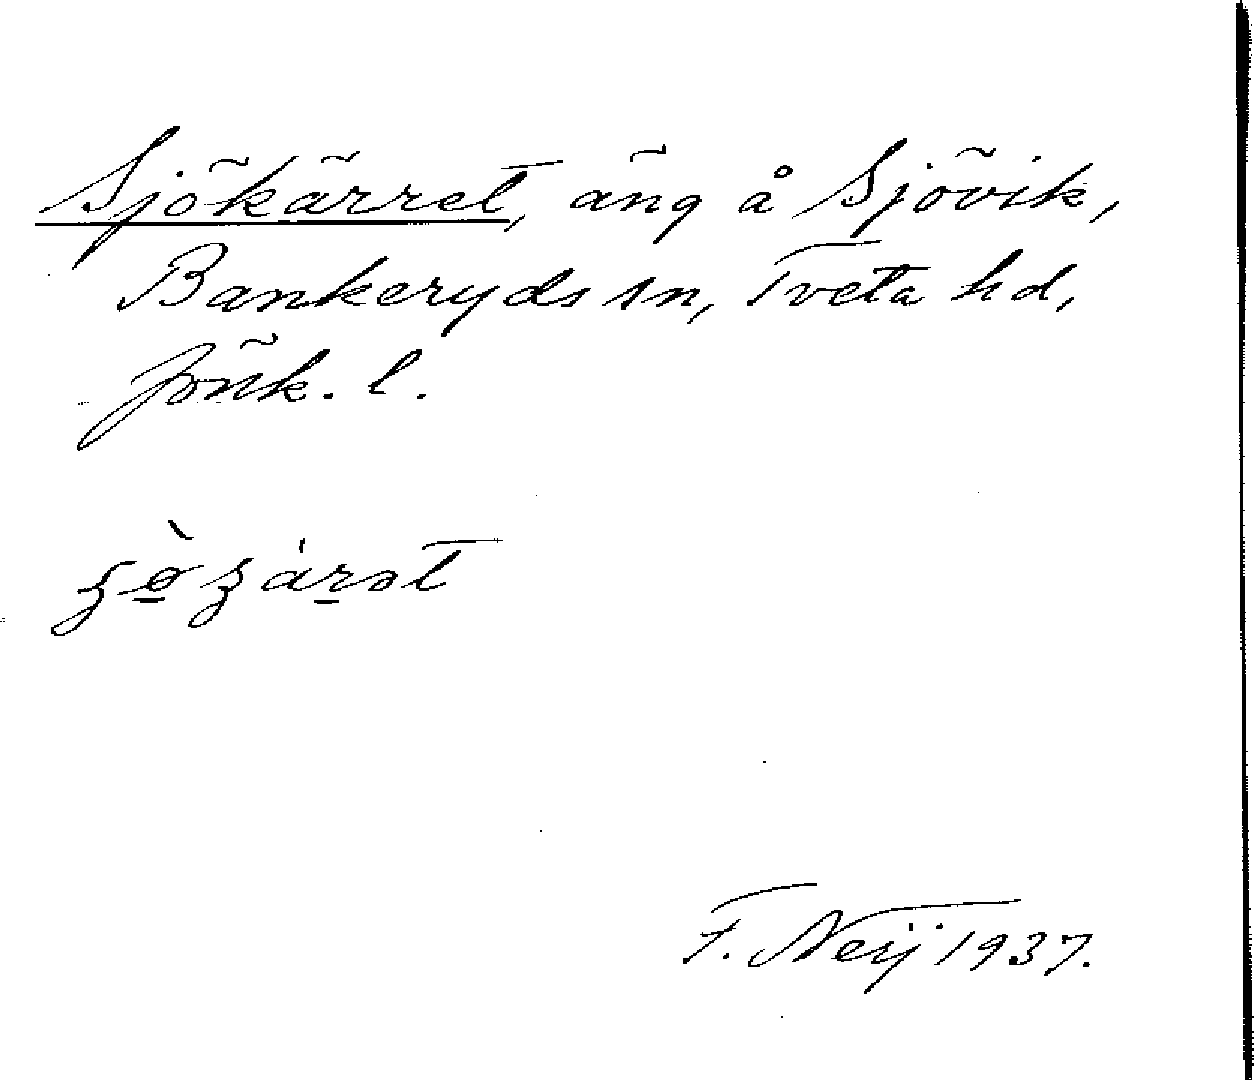 Sjökärret, äng å Sjövik,
Bankeryds sn, Tveta hd,
Jönk. l.
F. Neij 1937.